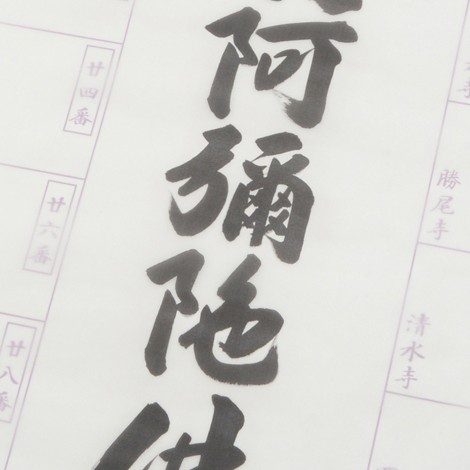 阿彌陁佛
勝尾寺
清水寺
廿四番
廿六番
廿八番